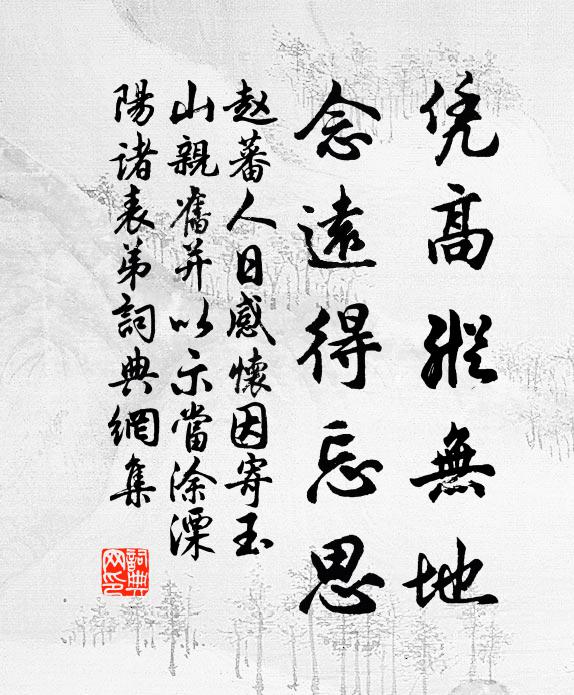 凭高纵無地
念遠得忘思
赵蕃人日感懷因寄玉
山親舊并以示當涂溧
陽诸表弟詞典網集
詞典网印